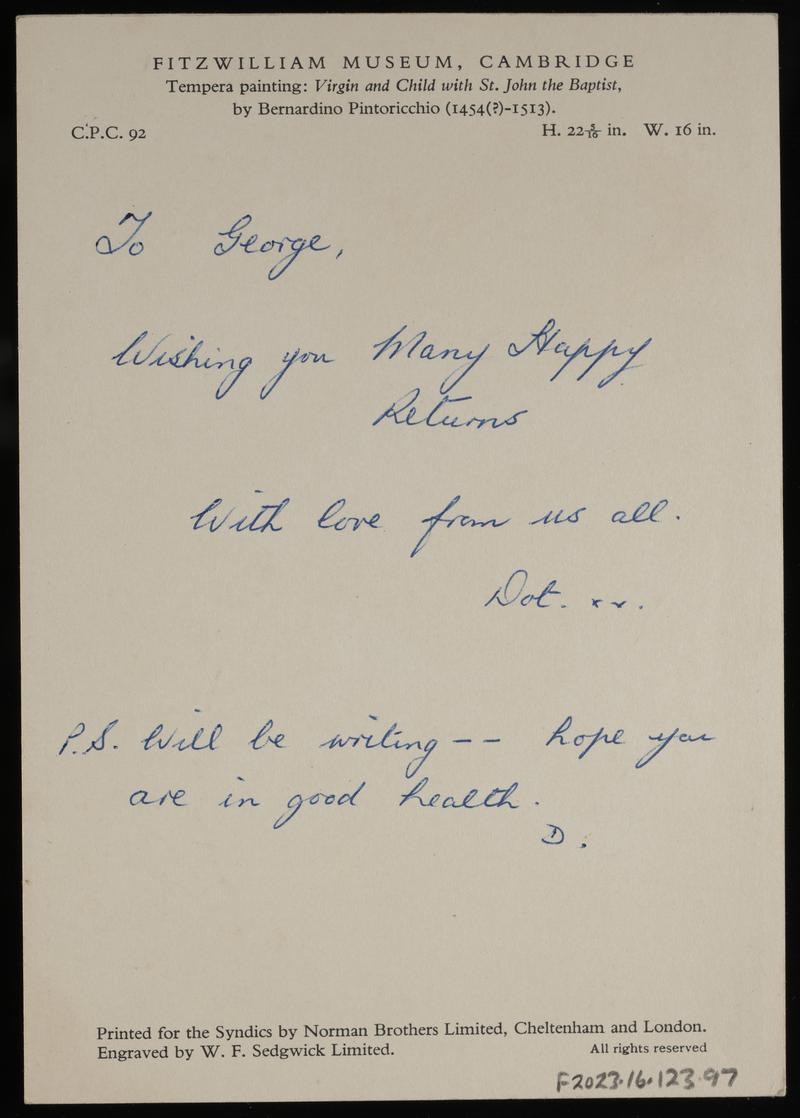 FITZWILLIAM MUSEUM, CAMBRIDGE
Tempera painting: Virgin and Child with St. John the Baptist,
by Bernardino Pintoricchio (1454(?)-1513).
C.P.C. 92 H. 22 5/16 in. W. 16 in.
To George,
Wishing you Many Happy
Returns
With love from us all.
Dot. xx.
P.S. Will be writing -- hope you
are in good health.
D.
Printed for the Syndics by Norman Brothers Limited, Cheltenham and London.
Engraved by W. F. Sedgwick Limited. All rights reserved
F2023.16.123.97